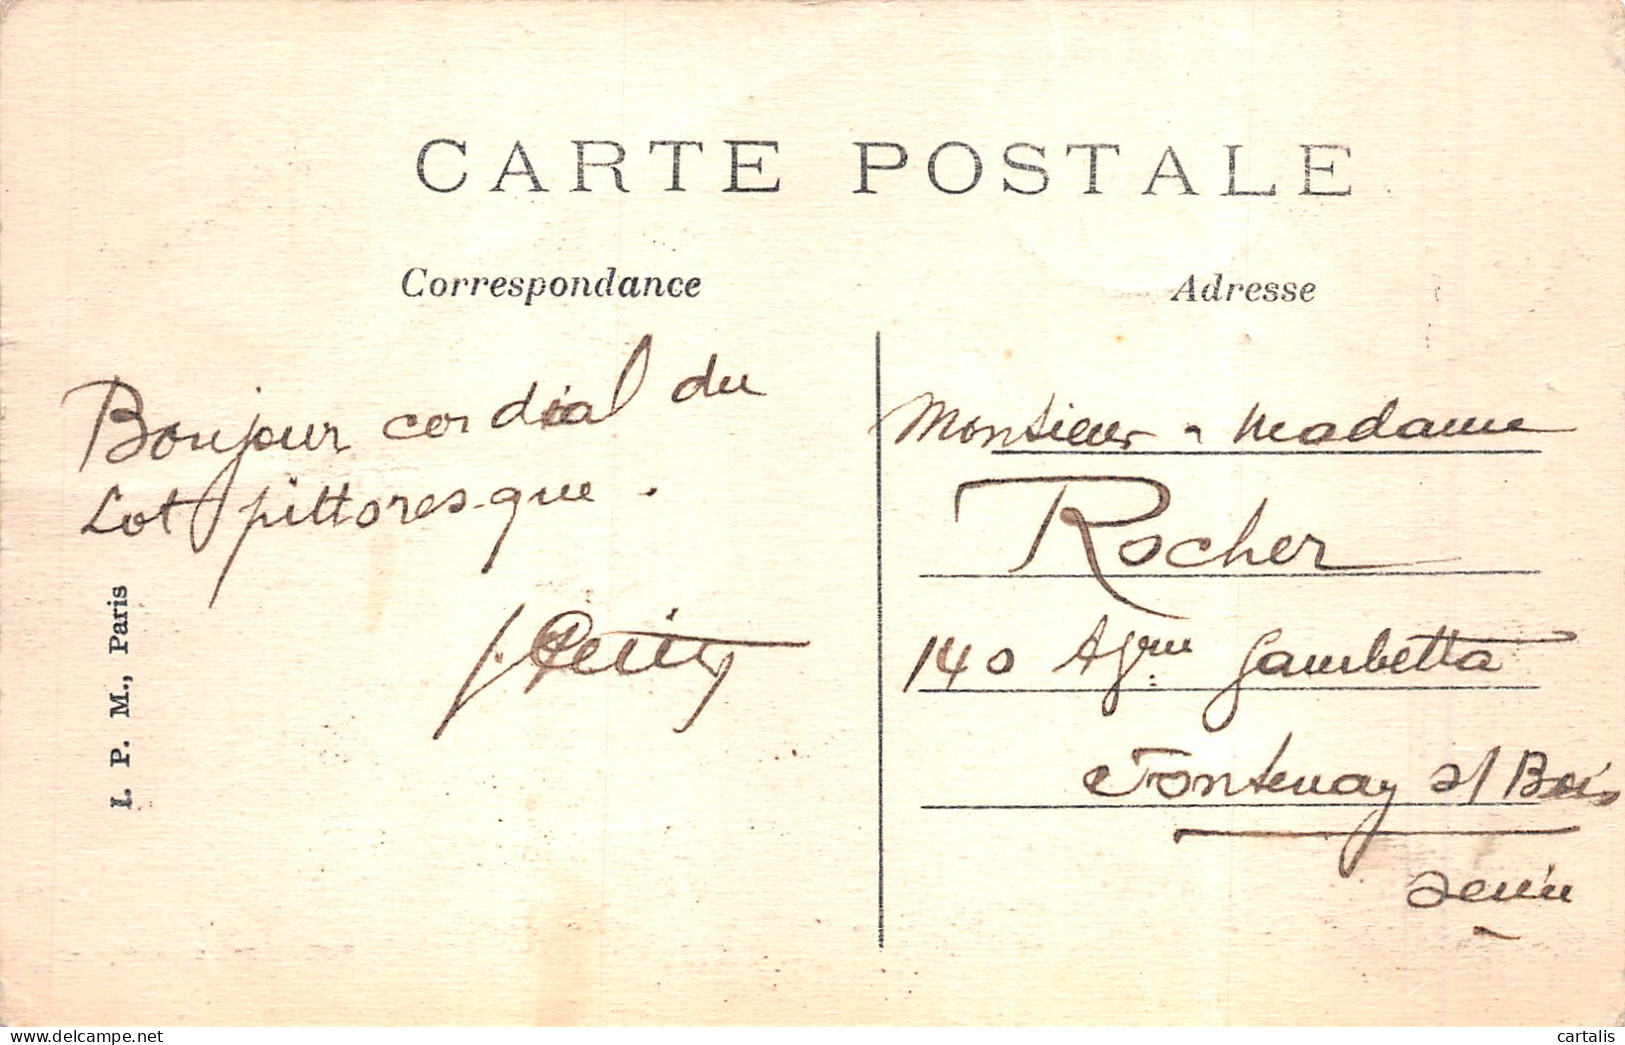 CARTE POSTALE
Correspondance
Adresse
Bonjour cordial du
Lot pittoresque.
I. P. M., Paris
Monsieur - Madame
Rocher
140 Gambetta
Fontenay s/ Bois
Seine
www.delcampe.net
cartalis